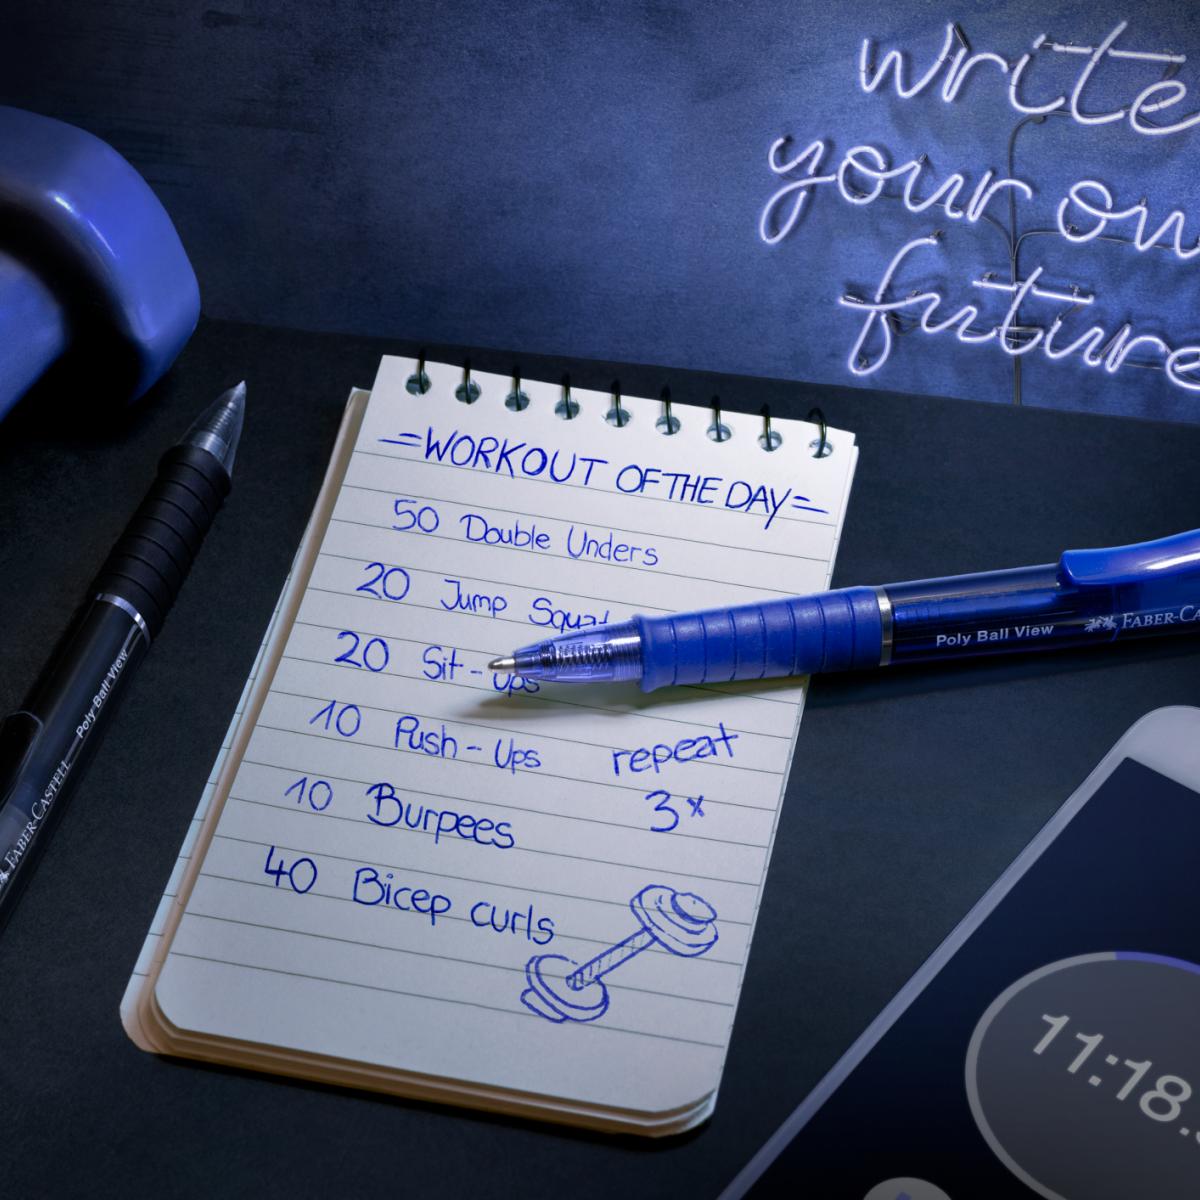 write
your ow
future
=WORKOUT OF THE DAY=
50 Double Unders
20 Jump Squat
20 Sit-Ups
10 Push-Ups
10 Burpees
40 Bicep curls
repeat
3x
Poly Ball View FABER-CA
Poly Ball View
FABER-CASTELL
11:18.